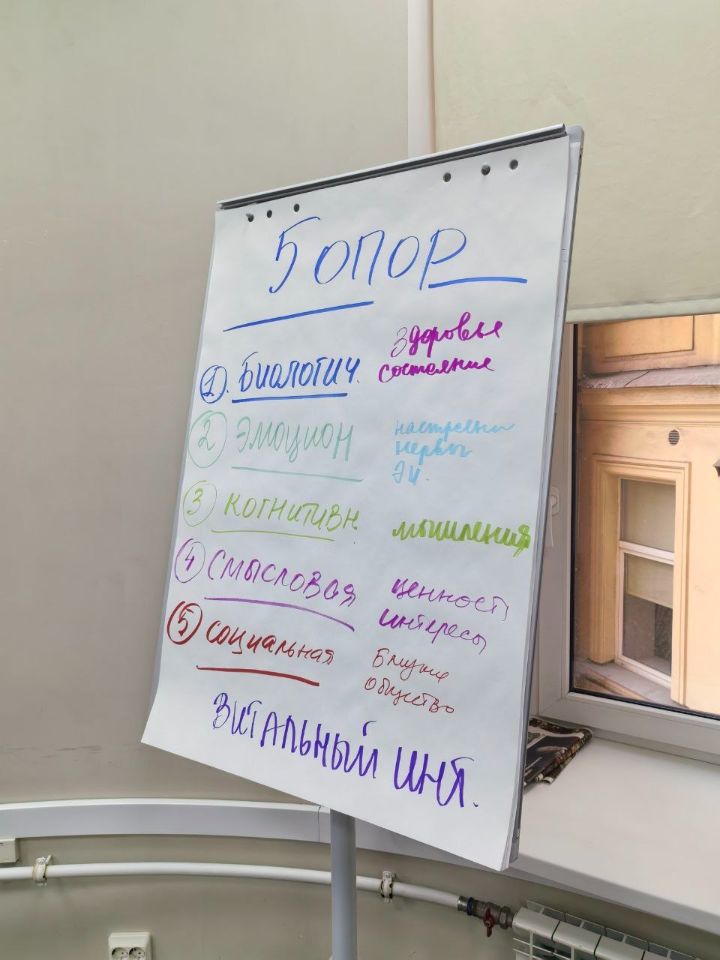 5 ОПОР
1. БИОЛОГИЧ. Здоровье
состояние
2 ЭМОЦИОН
нервы
ЭИ.
3 КОГНИТИВН. мышления
4 СМЫСЛОВАЯ ценности
интересы
5 СОЦИАЛЬНАЯ Близкие
общество
ВИТАЛЬНЫЙ ИНТ.